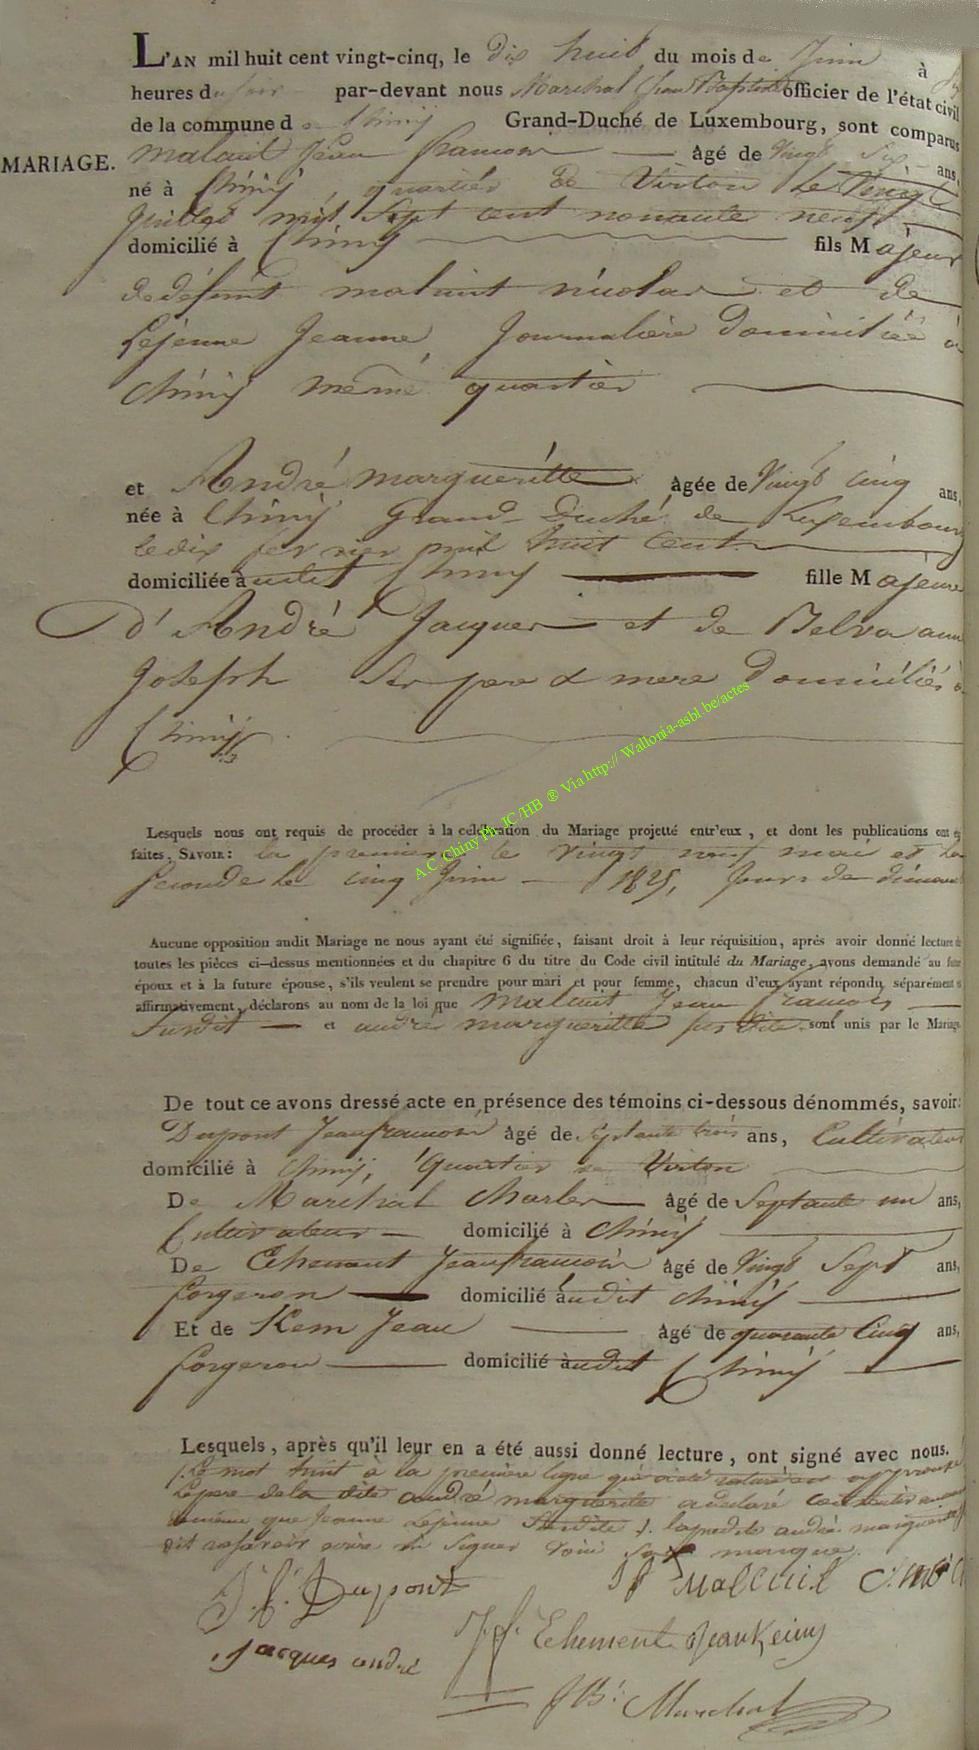 L'AN mil huit cent vingt-cinq, le dix huit du mois de Juin à
heures du soir par-devant nous Marechal Jean Baptiste officier de l'état civil
de la commune de Chiny Grand-Duché de Luxembourg, sont comparus
MARIAGE.
malaut Jean francois âgé de vingt six ans,
né à Chiny, quartier de Virton le Vingt
juillet mil sept cent nonante neuf
domicilié à Chiny fils Majeur
de défunt malaut nicolas et de
Lejeune Jeanne, Journalière Domiciliée à
Chiny même quartier
et André margueritte âgée de Vingt cinq ans,
née à Chiny Grand-Duché de Luxembourg
le dix fevrier mil huit cent
domiciliée audit Chiny fille Majeure
D'André Jacques et de Belva anne
Joseph Ses pere & mere Domiciliés à
Chiny
A.C. Chiny Ph. JC/HB ® Via http:// Wallonia-asbl.be/actes
Lesquels nous ont requis de procéder à la célébration du Mariage projetté entr'eux, et dont les publications ont été
faites, SAVOIR: la premiere le vingt neuf mai et la
seconde le cinq Juin 1825, Jours de dimanche
Aucune opposition audit Mariage ne nous ayant été signifiée, faisant droit à leur réquisition, après avoir donné lecture de
toutes les pièces ci-dessus mentionnées et du chapitre 6 du titre du Code civil intitulé du Mariage, avons demandé au futur
époux et à la future épouse, s'ils veulent se prendre pour mari et pour femme, chacun d'eux ayant répondu séparément et
affirmativement, déclarons au nom de la loi que malaut Jean francois
susdit et andré margueritte susdite sont unis par le Mariage.
De tout ce avons dressé acte en présence des témoins ci-dessous dénommés, savoir:
Dupont Jean francois âgé de septante trois ans, Cultivateur
domicilié à Chiny, Quartier de Virton
De Marechal Charles âgé de Septante un ans,
Cultivateur domicilié à Chiny
De Ehement Jean francois âgé de Vingt Sept ans,
forgeron domicilié audit Chiny
Et de Kem Jean âgé de quarante Cinq ans,
forgeron domicilié audit Chiny
Lesquels, après qu'il leur en a été aussi donné lecture, ont signé avec nous.
Le mot huit à la première ligne approuvé
Le pere de la dite andré margueritte a declaré consentir
de même que Jeanne Lejeune susdite laquelle andré margueritte
dit ne savoir ecrire ni signer voici sa X marque
J. f. Dupont
Jacques andré
J f. Ehement Jean Keim
J B: Marechal